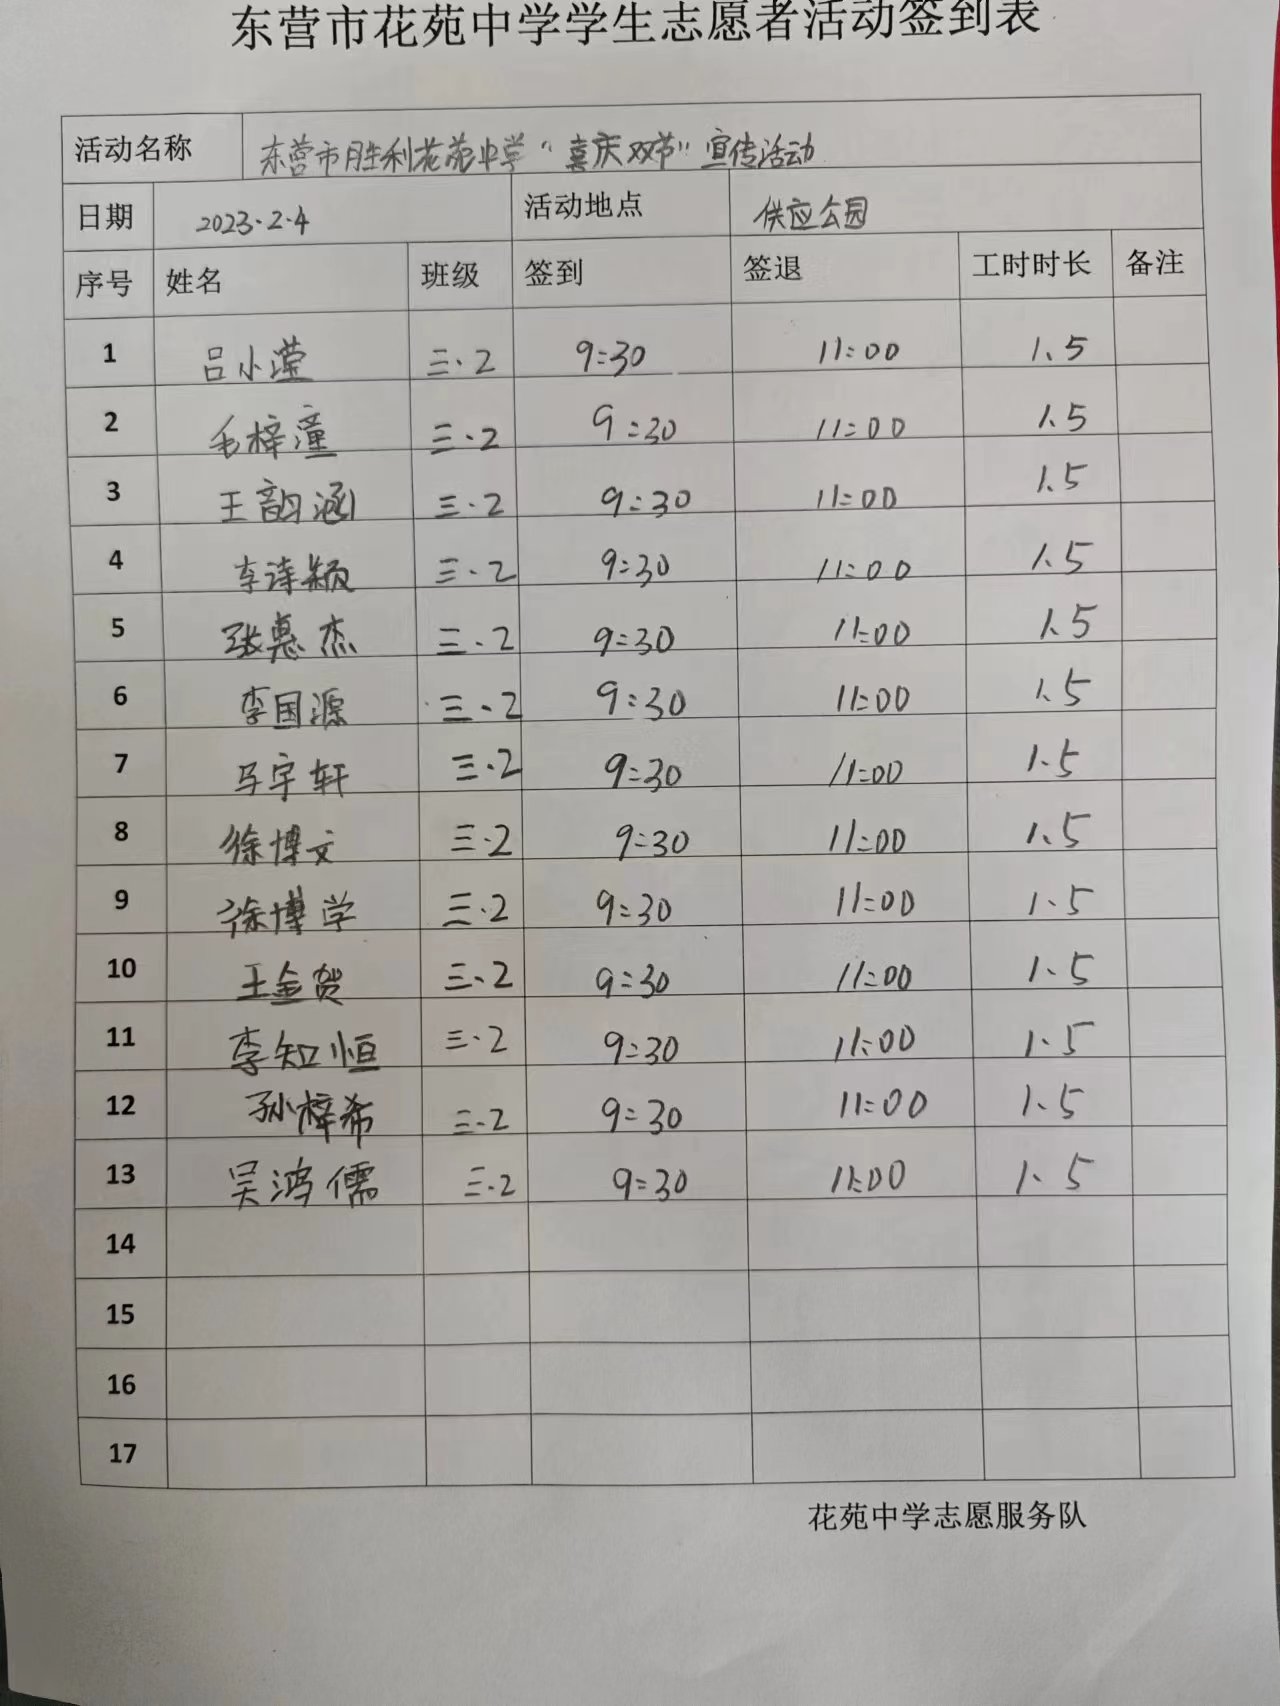 东营市花苑中学学生志愿者活动签到表
活动名称 东营市胜利花苑中学“喜庆双节”宣传活动
日期 2023.2.4 活动地点 供应公园
序号 姓名 班级 签到 签退 工时时长 备注
1 吕小滢 三.2 9:30 11:00 1.5
2 毛梓潼 三.2 9:30 11:00 1.5
3 王韵涵 三.2 9:30 11:00 1.5
4 李诗颖 三.2 9:30 11:00 1.5
5 张惠杰 三.2 9:30 11:00 1.5
6 李国源 三.2 9:30 11:00 1.5
7 马宇轩 三.2 9:30 11:00 1.5
8 徐博文 三.2 9:30 11:00 1.5
9 徐博学 三.2 9:30 11:00 1.5
10 王金贺 三.2 9:30 11:00 1.5
11 李知恒 三.2 9:30 11:00 1.5
12 孙梓希 三.2 9:30 11:00 1.5
13 吴鸿儒 三.2 9:30 11:00 1.5
14
15
16
17
花苑中学志愿服务队